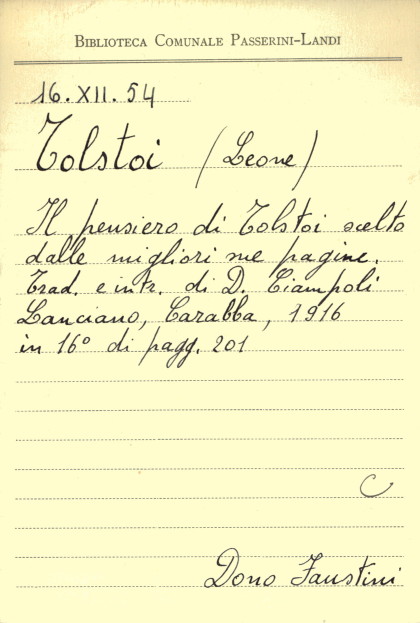 BIBLIOTECA COMUNALE PASSERINI-LANDI
16.XII.54
Tolstoi (Leone)
Il pensiero di Tolstoi scelto
dalle migliori sue pagine.
Trad. e intr. di D. Ciampoli
Lanciano, Carabba, 1916
in 16° di pagg. 201
C
Dono Faustini